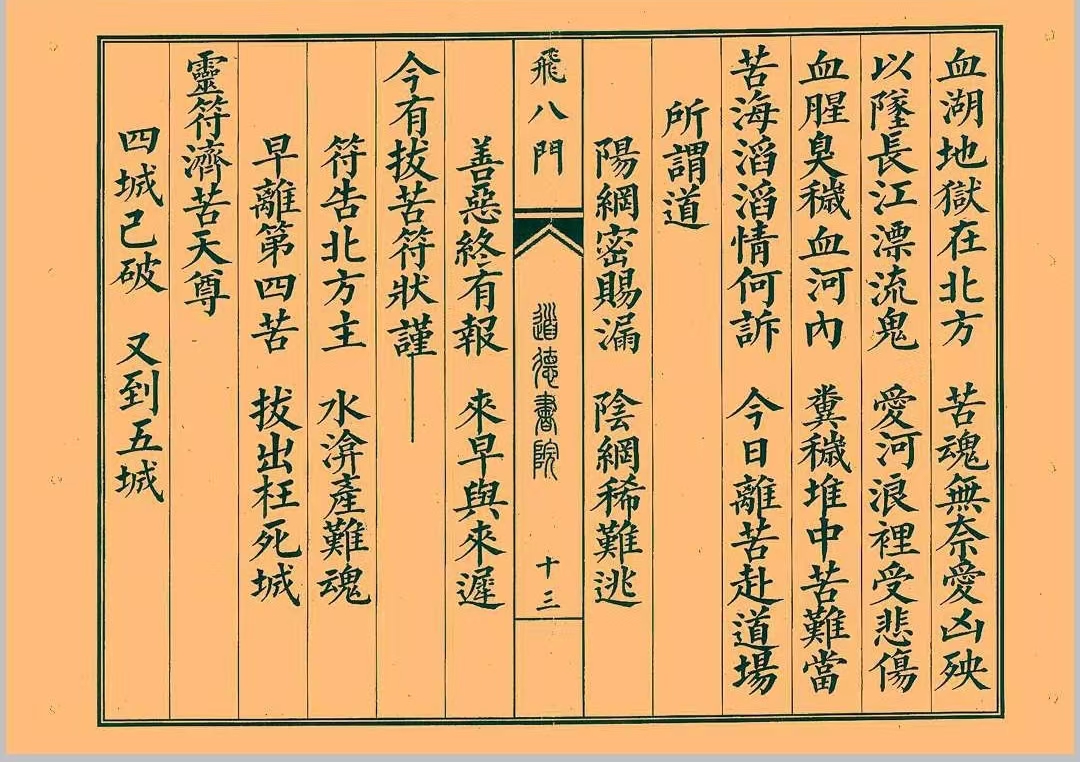 血湖地獄在北方　苦魂無奈愛凶殃
以墜長江漂流鬼　愛河浪裡受悲傷
血腥臭穢血河內　糞穢堆中苦難當
苦海滔滔情何訴　今日離苦赴道場
所謂道
陽綱密賜漏　陰綱稀難逃
飛八門　道德書院　十三
善惡終有報　來早與來遲
今有拔苦符狀謹
符告北方主　水渰產難魂
早離第四苦　拔出枉死城
靈符濟苦天尊
四城已破　又到五城